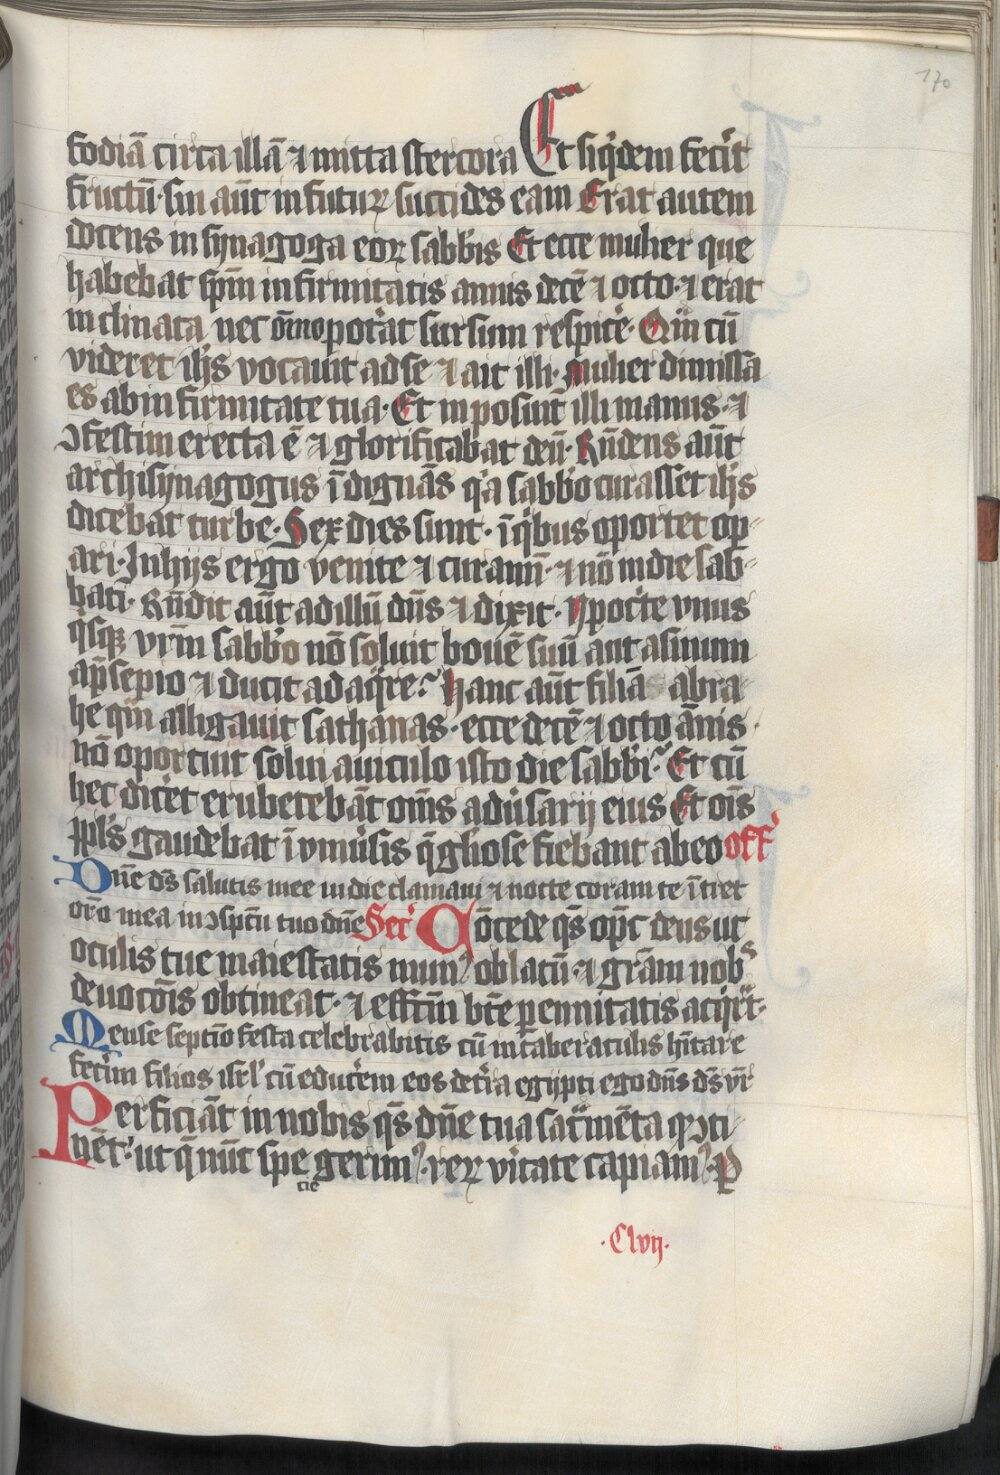 170
fodiā circa illā ⁊ mitta stercora Et siq̇dem fecīt
fructū· sin aūt in futurꝝ succides eam Erat autem
docens in synagoga eoꝝ sabb̄is Et ecce mulier que
habebat sp̄m infirmitatis annis decē ⁊ octo· ⁊ erat
inclinata nec ōmno poťat sursum respicē· Quā cū
videret ih̄s vocauit ad se ⁊ ait illi· mulier dimissa
es ab infirmitate tua· Et inposuit illi manus· ⁊
ↄfestim erecta ē ⁊ glorificabat deū· Rn̄dens aūt
archisynagogus īdignās q'a sabb̄o curasset ih̄s
dicebat turbe· Sex dies sunt· īq'bus oportet op-
ari· In hijs ergo venite ⁊ curamī· ⁊ nō in die sab-
bati· Rn̄dit aūt ad illū dn̄s ⁊ dixit· ypoc'te vnus
q'sqꝫ vr̄m sabb̄o nō soluit bouē suū aut asinum
a p̄sepio ⁊ ducit adaq̄re? hanc aūt filiā abra
he qm̄ alligauit sathanas· ecce decē ⁊ octo ānis·
nō oportuit solui a uiculo isto die sabb̄i? Et cū
hec dicēt erubescebāt om̄s adu'sarij eius Et oīs
pp̄ls gaudebat ī vniu'sis q̄ gl'iose fiebant ab eo off'
Dn̄e ds̄ salutis mee in die clamaui ⁊ nocte coram te ītret
or̄o mea in ↄspc̄tu tuo dn̄e Secr' Cōcede qs̄ op̄c deus ut
oculis tue maiestatis mun' oblatū· ⁊ gr̄am nob̄
deuoc̄ois obtineat· ⁊ effc̄m bt̄e pennitatis acq'rat·
Mense septīo festa celebrabitis cū in tabernaculis hītare
fec'im filios isr̄l' cū educ'em eos de t'ra egypti ego dn̄s ds̄ vr̄
Perficiāt in nobis qs̄ dn̄e tua sac̄mēta q̄ ↄti
nēt· ut q̄ nūc spe gerim' · reꝝ v'itate capiam' · P
cie
·Clvij·